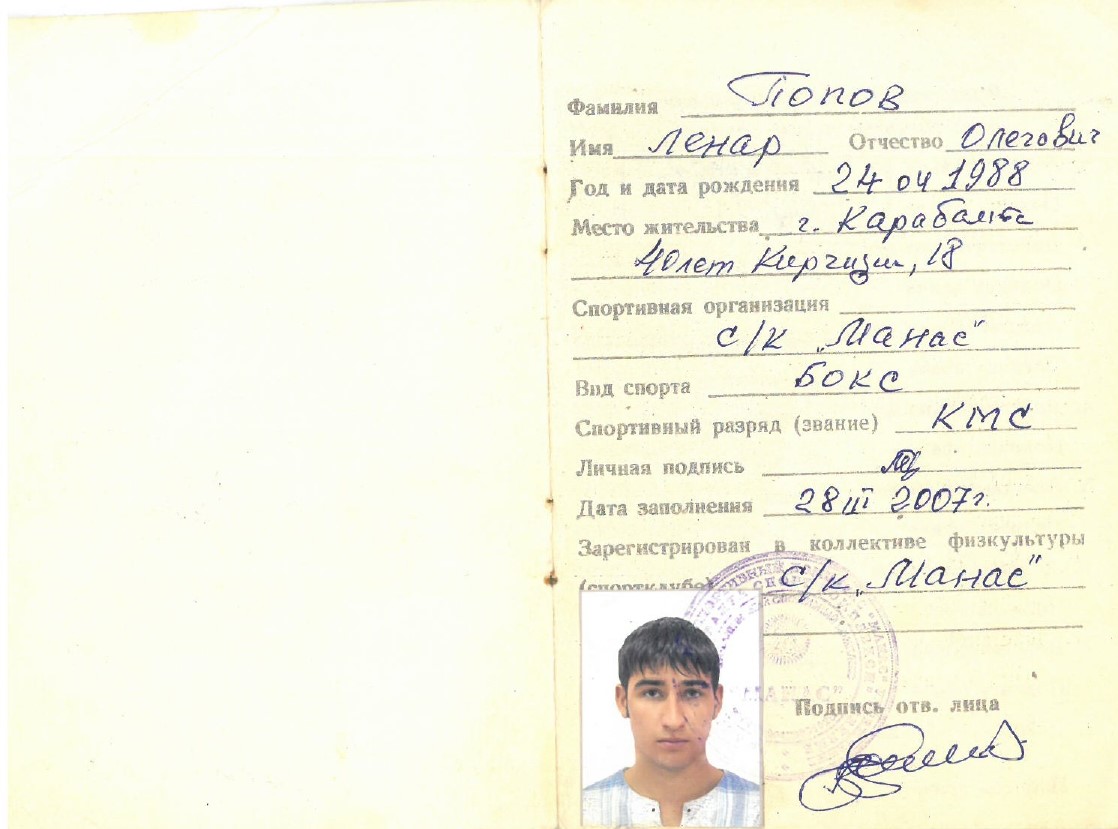 Фамилия Попов
Имя Ленар Отчество Олегович
Год и дата рождения 24 04 1988
Место жительства г. Карабалта
40 лет Киргизии, 18
Спортивная организация
с/к „Манас"
Вид спорта Бокс
Спортивный разряд (звание) КМС
Личная подпись
Дата заполнения 28 III 2007г.
Зарегистрирован в коллективе физкультуры
(спортклубе) с/к „Манас"
"МАНАС"
Подпись отв. лица